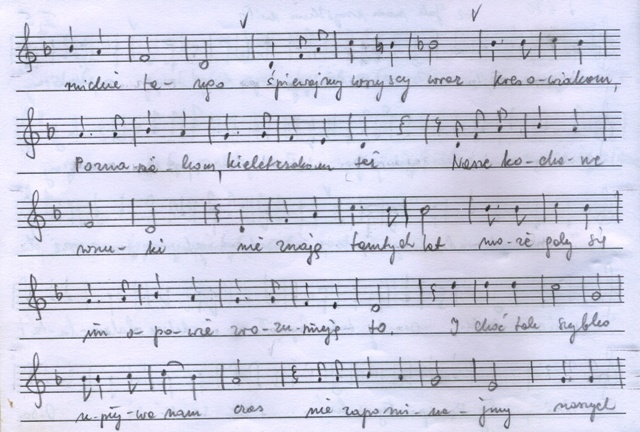 mickie ta - ngo śpiewajmy wszyscy wraz kreso-wiakom,
Pozna-nia-kom, kielczakom też Nasze ko-cha-ne
wnu-ki nie znają tamtych lat mo-że gdy się
im o-po-wie zro-zu-mieją to. I choć tak szybko
u-pły-wa nam czas nie zapo-mi-na-jmy naszych